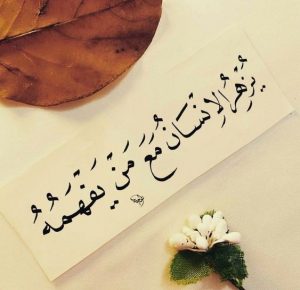 يُزهِرُ الإنسَانُ مَعَ مَنْ يَفْهَمُهُ